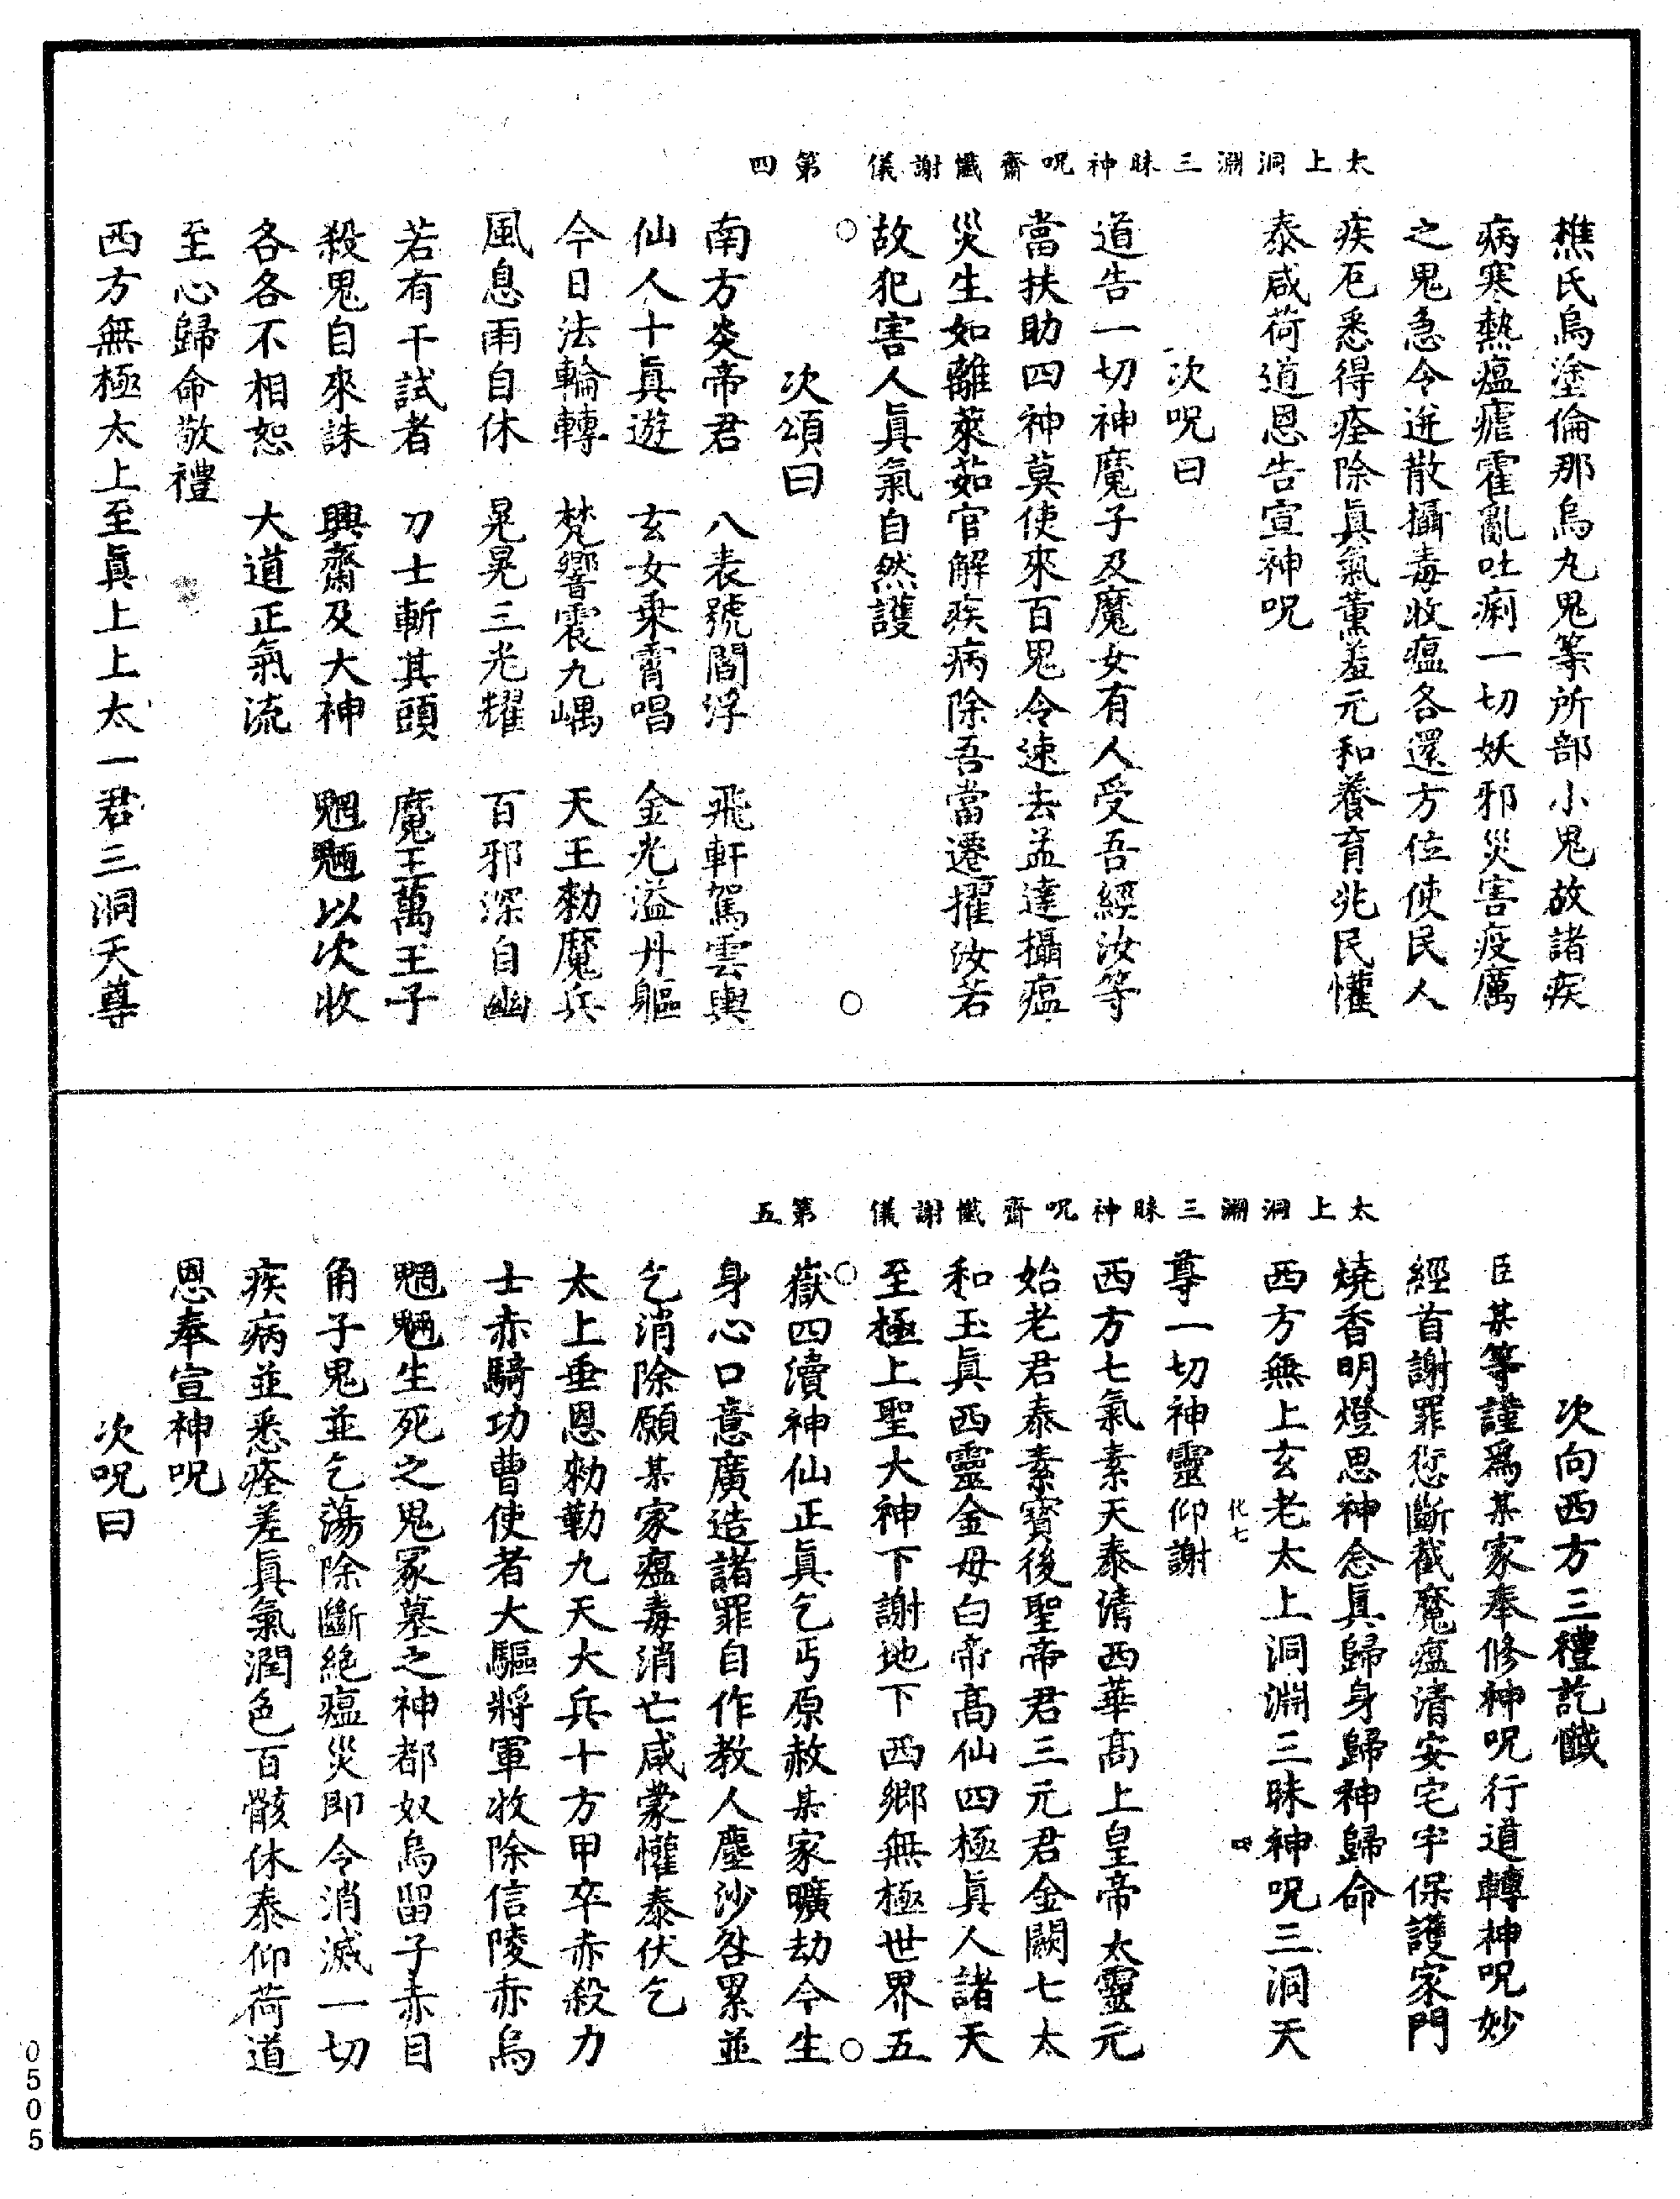 太上洞淵三昧神呪齋懺謝儀　第四
樵氏烏塗倫那烏丸鬼等所部小鬼故諸疾
病寒熱瘟瘧霍亂吐痢一切妖邪災害疫厲
之鬼急令迸散攝毒收瘟各還方位使民人
疾厄悉得痊除眞氣薰羞元和養育兆民懽
泰咸荷道恩告宣神呪
次呪曰
道告一切神魔子及魔女有人受吾經汝等
當扶助四神莫使來百鬼令速去孟達攝瘟
災生如離萊茹官解疾病除吾當遷擢汝若
故犯害人眞氣自然護
次頌曰
南方炎帝君　八表號閻浮　飛軒駕雲輿
仙人十眞遊　玄女乗霄唱　金光溢丹軀
今日法輪轉　梵響震九嵎　天王勑魔兵
風息雨自休　晃晃三光耀　百邪深自幽
若有干試者　刀士斬其頭　魔王萬王子
殺鬼自來誅　興齋及大神　魍魎以次收
各各不相恕　大道正氣流
至心歸命敬禮
西方無極太上至眞上上太一君三洞天尊
太上洞淵三昧神呪齋懺謝儀　第五
次向西方三禮訖懺
臣某等謹爲某家奉修神呪行道轉神呪妙
經首謝罪愆斷截魔瘟清安宅宇保護家門
燒香明燈思神念眞歸身歸神歸命
西方無上玄老太上洞淵三昧神呪三洞天
化七
尊一切神靈仰謝
西方七氣素天泰清西華髙上皇帝太靈元
始老君泰素寳後聖帝君三元君金闕七太
和玉眞西靈金母白帝髙仙四極眞人諸天
至極上聖大神下謝地下西鄉無極世界五
嶽四瀆神仙正眞乞丐原赦某家曠劫今生
身心口意廣造諸罪自作教人塵沙咎累並
乞消除願某家瘟毒消亡咸蒙懽泰伏乞
太上垂恩勑勒九天大兵十方甲卒赤殺力
士赤騎功曹使者大驅將軍收除信陵赤烏
魍魎生死之鬼冢墓之神都奴烏留子赤目
角子鬼並乞蕩除斷絶瘟災即令消滅一切
疾病並悉痊差眞氣潤色百骸休泰仰荷道
恩奉宣神呪
次呪曰
0505